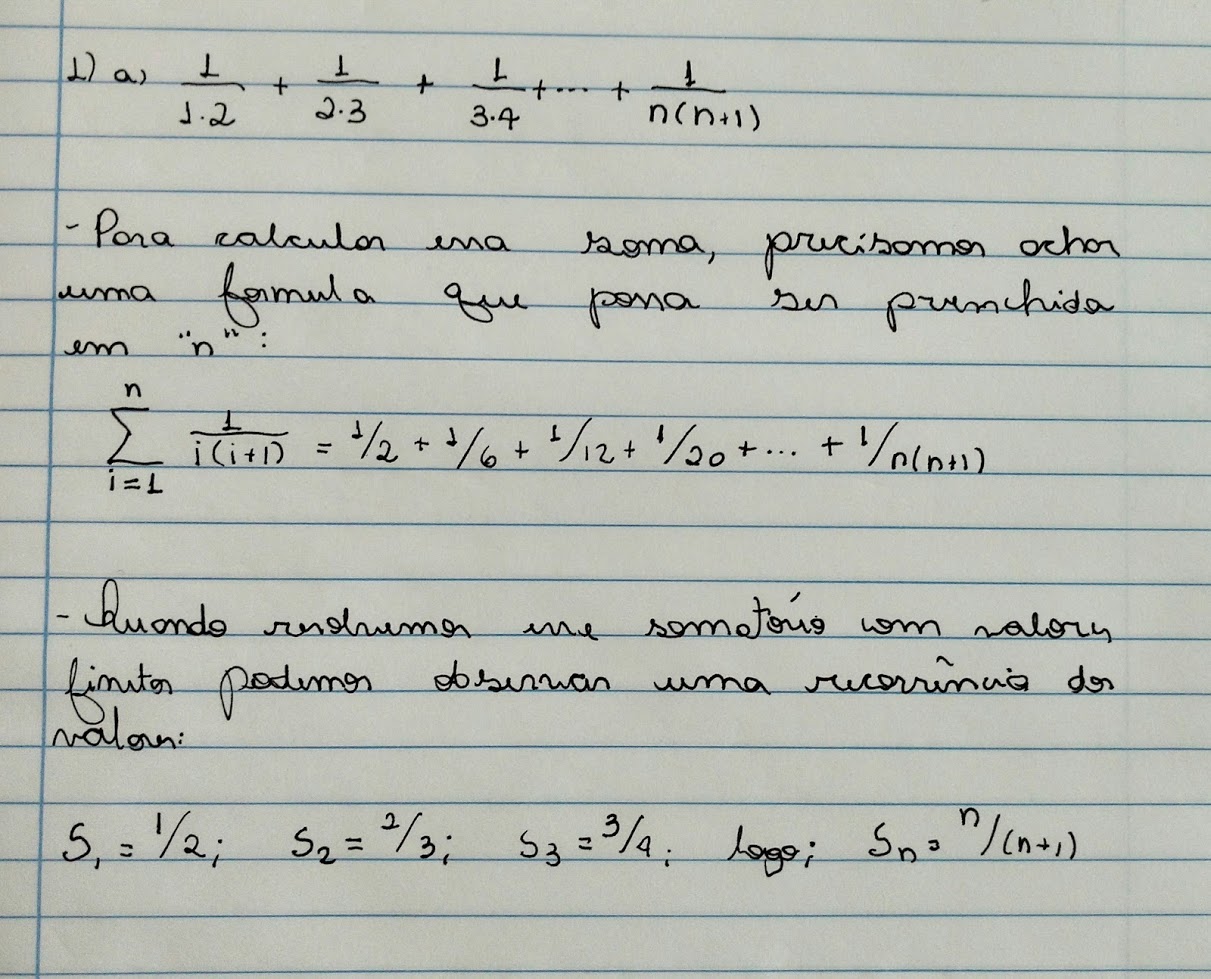 1) a) 1/1·2 + 1/2·3 + 1/3·4 + ... + 1/n(n+1)
- Para calcular essa soma, precisamos achar
uma formula que possa ser prenchida
em "n":
n∑i=1 1/i(i+1) = 1/2 + 1/6 + 1/12 + 1/20 + ... + 1/n(n+1)
- Quando resolvemos esse somatório com valores
finitos podemos observar uma recorrência dos
valores:
S₁ = 1/2; S₂ = 2/3; S₃ = 3/4; logo; Sn = n/(n+1)